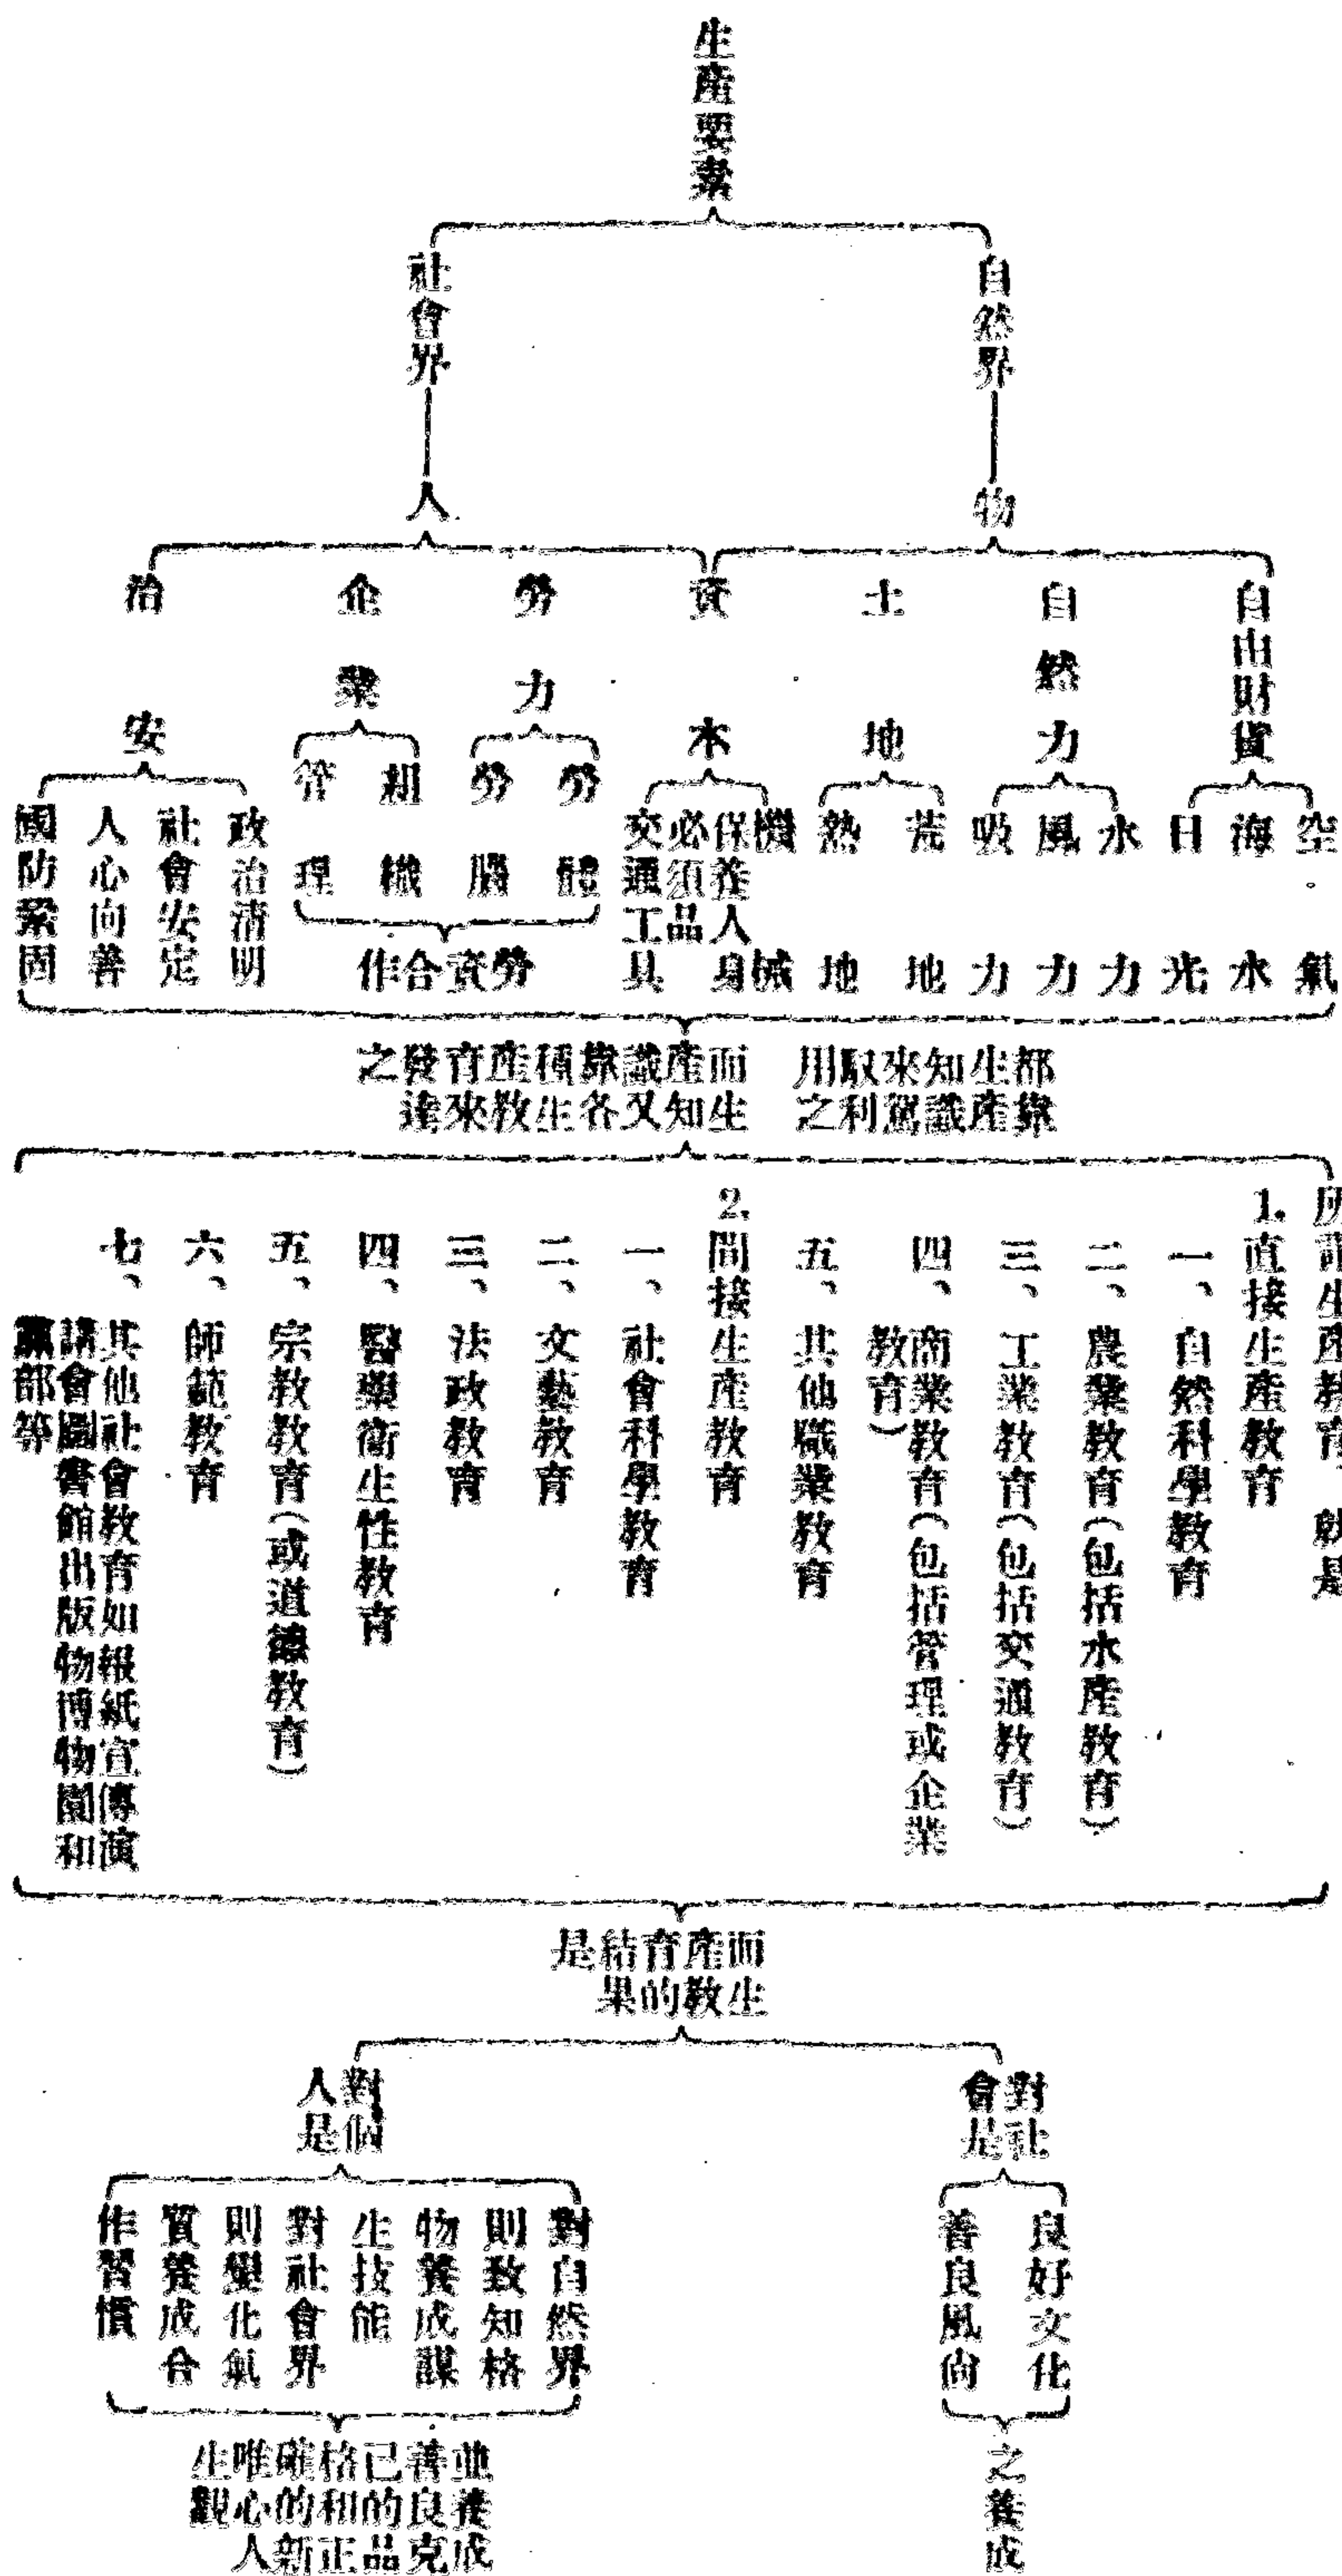 生產要素
自然界
物
社會界
人
自由財貨
空氣
海水
日光
自然力
水力
風力
吸力
土地
荒地
熱地
資本
機械
保養人身
必須品
交通工具
勞力
勞體
勞腦
企業
組織
管理
勞資合作
治安
政治清明
社會安定
人心向善
國防鞏固
都靠生產知識來駕馭利用之
而生產知識又靠各種生產教育來發達之
所謂生產教育、就是
1.直接生產教育
一、自然科學教育
二、農業教育(包括水產教育)
三、工業教育(包括交通教育)
四、商業教育(包括管理或企業
教育)
五、其他職業教育
2.間接生產教育
一、社會科學教育
二、文藝教育
三、法政教育
四、醫藥衛生性教育
五、宗教教育(或道德教育)
六、師範教育
七、其他社會教育如報紙宣傳演
講會圖書館出版物博物園和
部等
而生產教育的結果是
對社會是
良好文化
善良風尚
之養成
對個人是
對自然界
則致知格
物養成謀
生技能
對社會界
則變化氣
質養成合
作習慣
並養成善良克己的品格和正確的新唯心人生觀